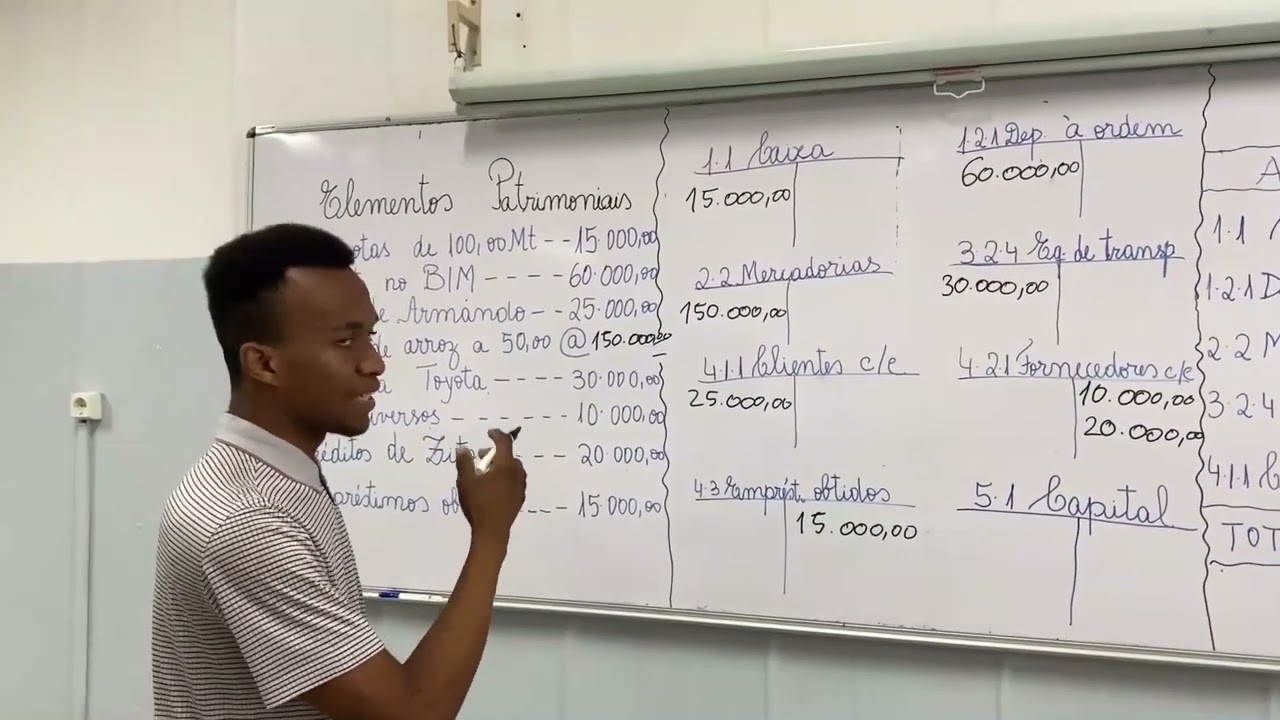 Elementos Patrimoniais
otas de 100,00Mt -- 15.000,00
no BIM ---- 60.000,00
e Armando -- 25.000,00
de arroz a 50,00 @ 150.000,00
a Toyota ---- 30.000,00
iversos ------ 10.000,00
éditos de Zito --- 20.000,00
préstimos ob --- 15.000,00
1.1 Caixa
15.000,00
2.2 Mercadorias
150.000,00
4.1.1 Clientes c/c
25.000,00
4.3 Emprést. obtidos
15.000,00
1.2.1 Dep. à ordem
60.000,00
3.2.4 Eq. de transp
30.000,00
4.2.1 Fornecedores c/c
10.000,00
20.000,00
5.1 Capital
A
1.1
1.2.1 D
2.2 M
3.2.4
4.1.1 C
TOT